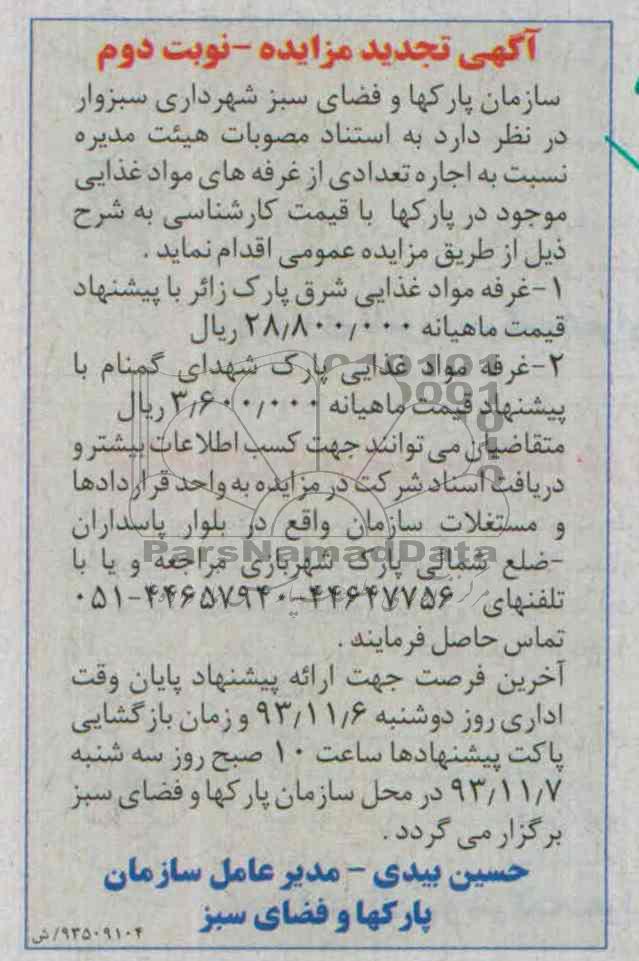 آگهی تجدید مزایده -نوبت دوم
سازمان پارکها و فضای سبز شهرداری سبزوار
در نظر دارد به استناد مصوبات هیئت مدیره
نسبت به اجاره تعدادی از غرفه های مواد غذایی
موجود در پارکها با قیمت کارشناسی به شرح
ذیل از طریق مزایده عمومی اقدام نماید .
۱-غرفه مواد غذایی شرق پارک زائر با پیشنهاد
قیمت ماهیانه ۲۸/۸۰۰/۰۰۰ ریال
۲-غرفه مواد غذایی پارک شهدای گمنام با
پیشنهاد قیمت ماهیانه ۳/۶۰۰/۰۰۰ ریال
متقاضیان می توانند جهت کسب اطلاعات بیشتر و
دریافت اسناد شرکت در مزایده به واحد قراردادها
و مستغلات سازمان واقع در بلوار پاسداران
ParsNamadData
-ضلع شمالی پارک شهربازی مراجعه و یا با
تلفنهای ۴۴۶۴۷۷۵۶-۴۴۶۵۷۹۴۰-۰۵۱
تماس حاصل فرمایند .
آخرین فرصت جهت ارائه پیشنهاد پایان وقت
اداری روز دوشنبه ۹۳/۱۱/۶ و زمان بازگشایی
پاکت پیشنهادها ساعت ۱۰ صبح روز سه شنبه
۹۳/۱۱/۷ در محل سازمان پارکها و فضای سبز
برگزار می گردد .
حسین بیدی - مدیر عامل سازمان
پارکها و فضای سبز
۹۳۵۰۹۱۰۴/ش